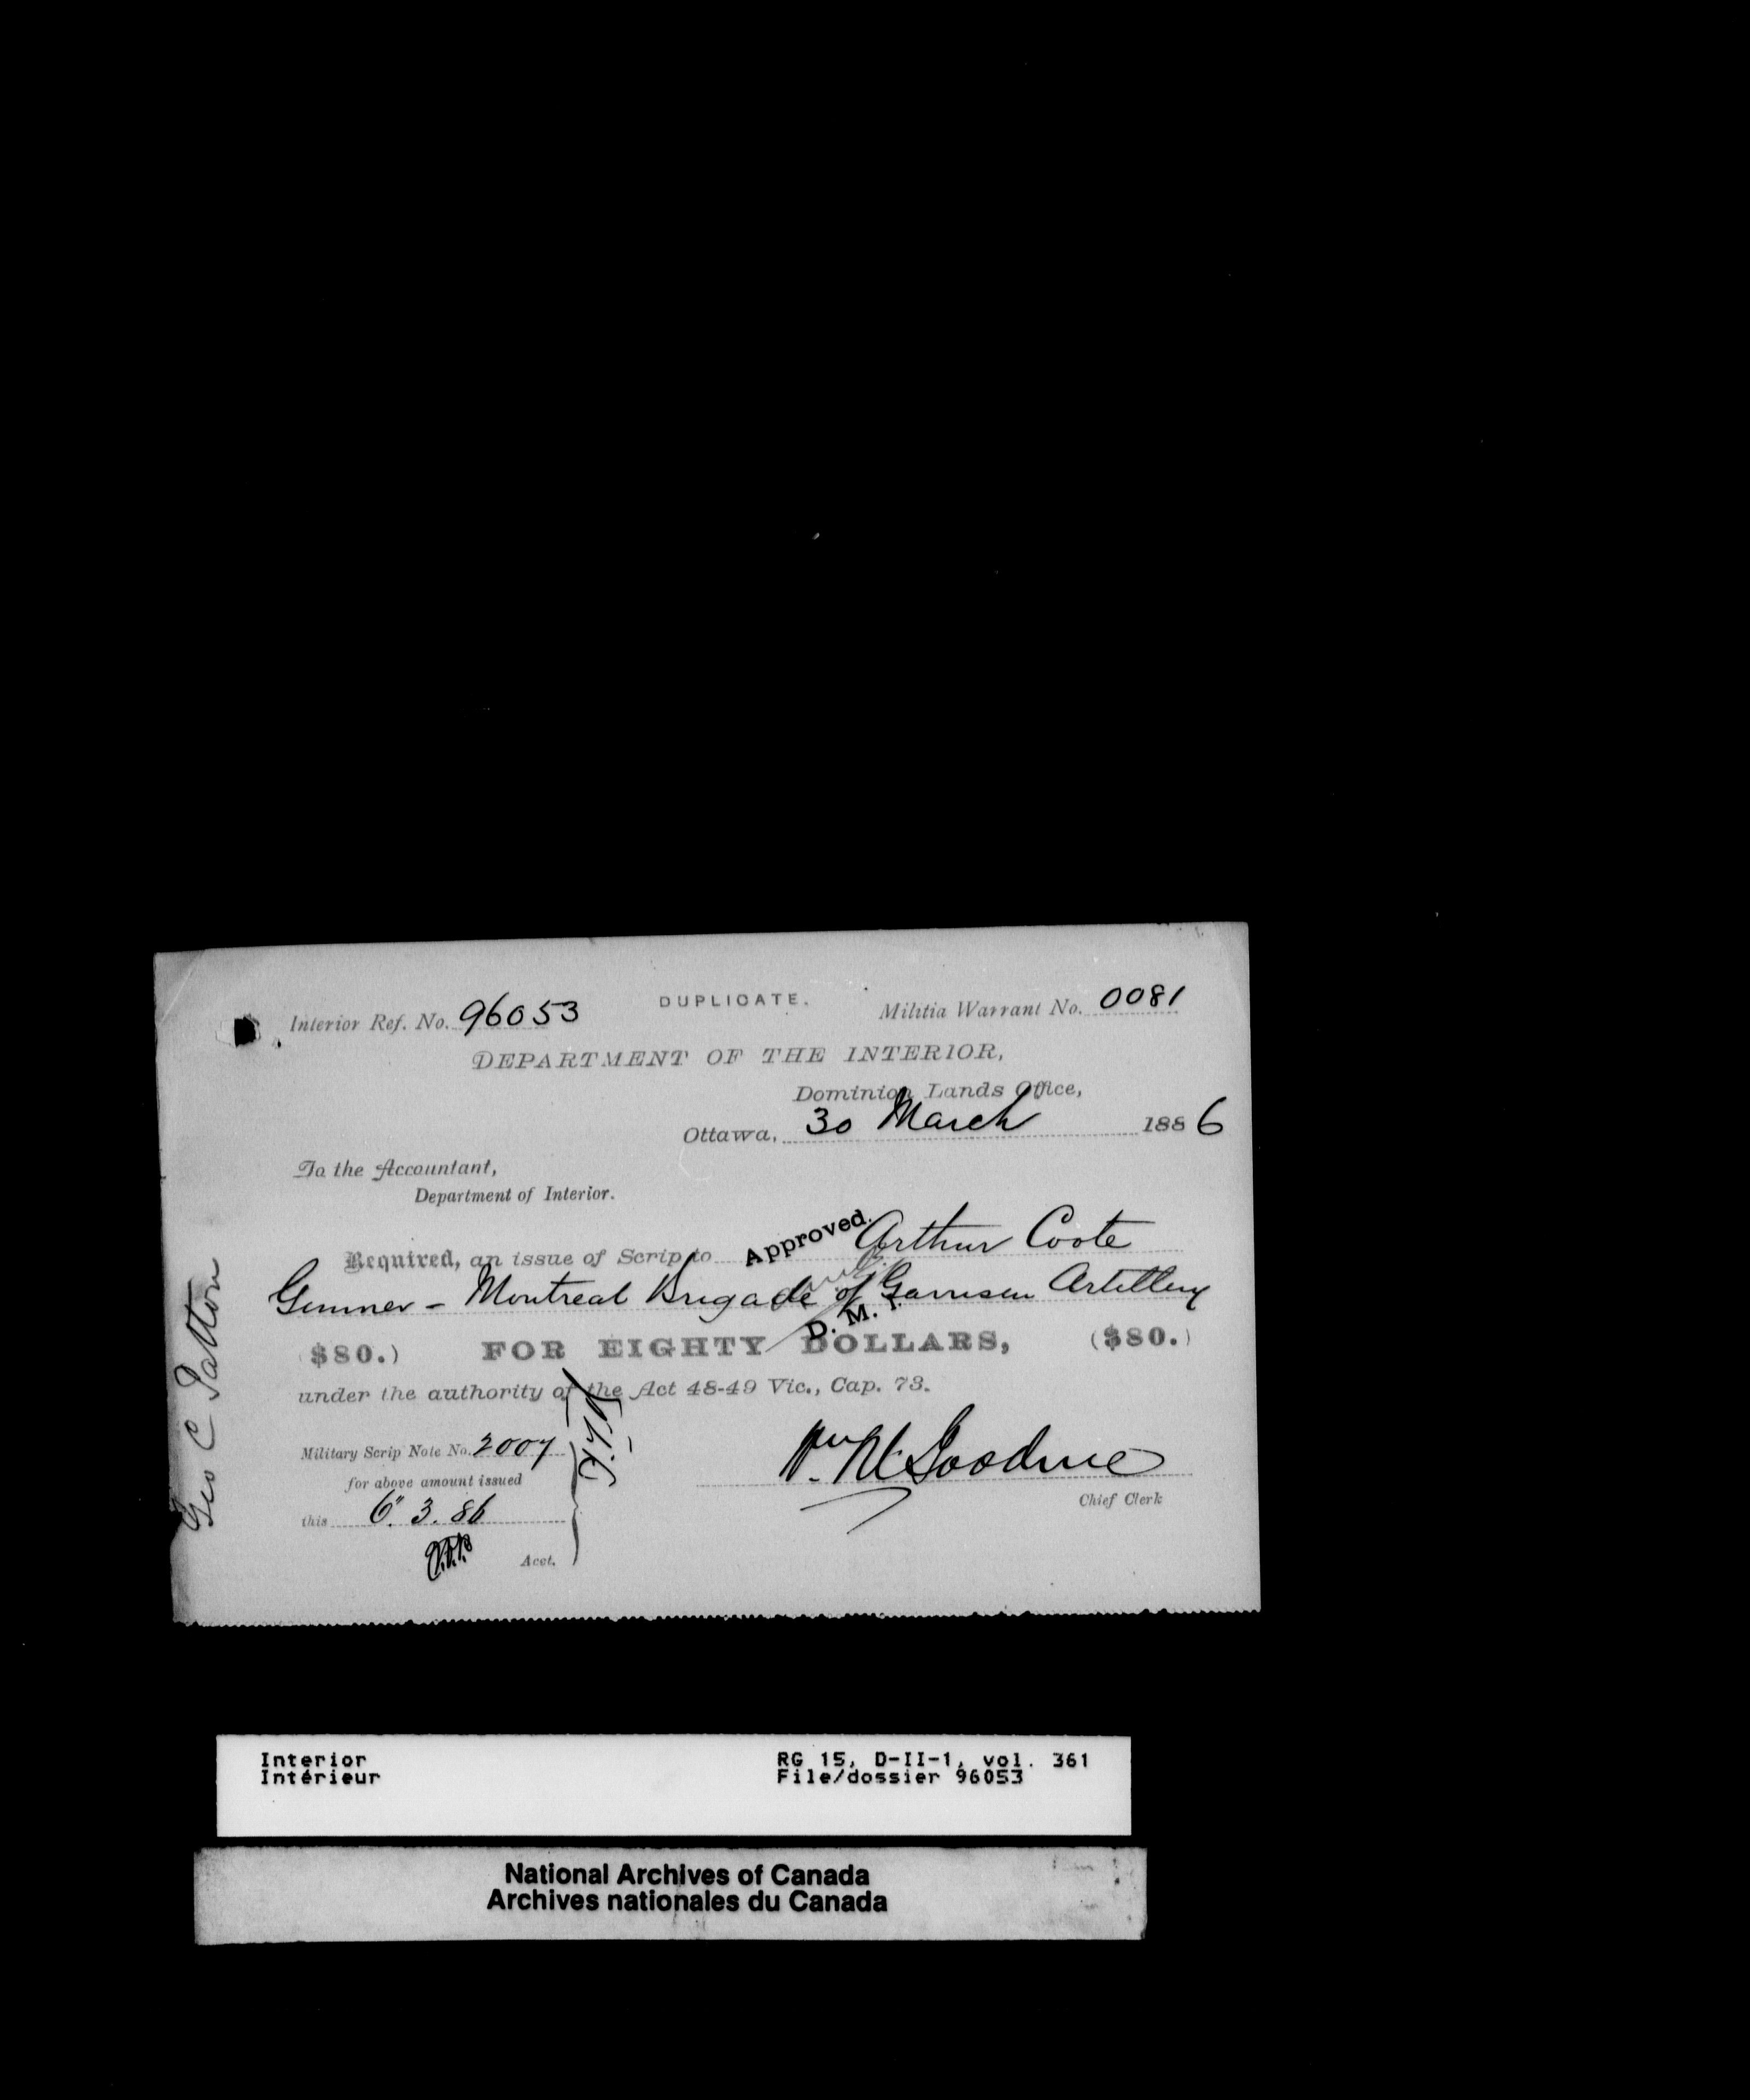 DUPLICATE.
Interior Ref. No. 96053
Militia Warrant No. 0081
DEPARTMENT OF THE INTERIOR,
Dominion Lands Office,
Ottawa, 30 March 1886
To the Accountant,
Department of Interior.
Approved.
Required, an issue of Scrip to Arthur Coote
Gunner - Montreal Brigade of Garrison Artillery
D. M. I.
($80.) FOR EIGHTY DOLLARS, ($80.)
under the authority of the Act 48-49 Vic., Cap. 73.
Military Scrip Note No. 2007
for above amount issued
this 6" 3. 86
Acct.
Chief Clerk
Geo C Patton
Interior
Intérieur
RG 15, D-II-1, vol. 361
File/dossier 96053
National Archives of Canada
Archives nationales du Canada